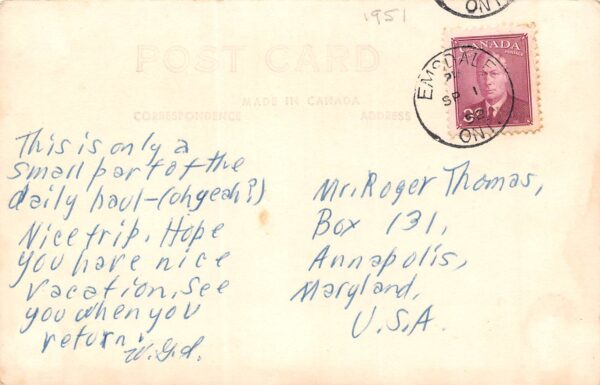 1951
ONT.
POST CARD
CANADA
POSTAGE
EMSDALE
PM
SP 1
ONT.
MADE IN CANADA
CORRESPONDENCE
ADDRESS
This is only a
small part of the
daily haul-(oh yeah?)
Nice trip. Hope
you have nice
vacation. See
you when you
return.
Mr. Roger Thomas,
Box 131,
Annapolis,
Maryland,
U.S.A.